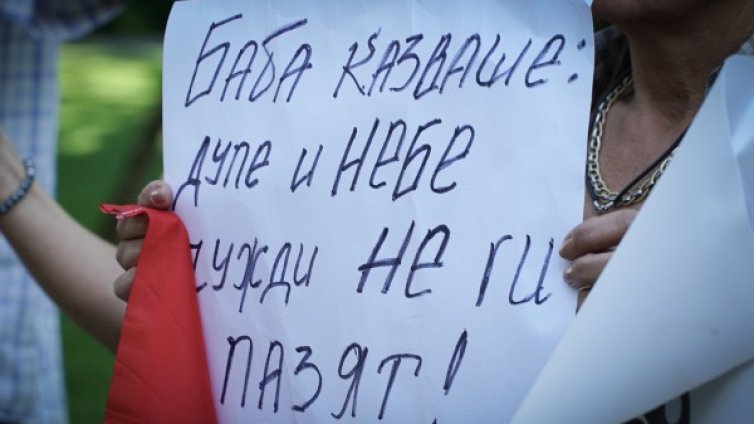 Баба казваше:
дупе и небе
чужди не ги
пазят!